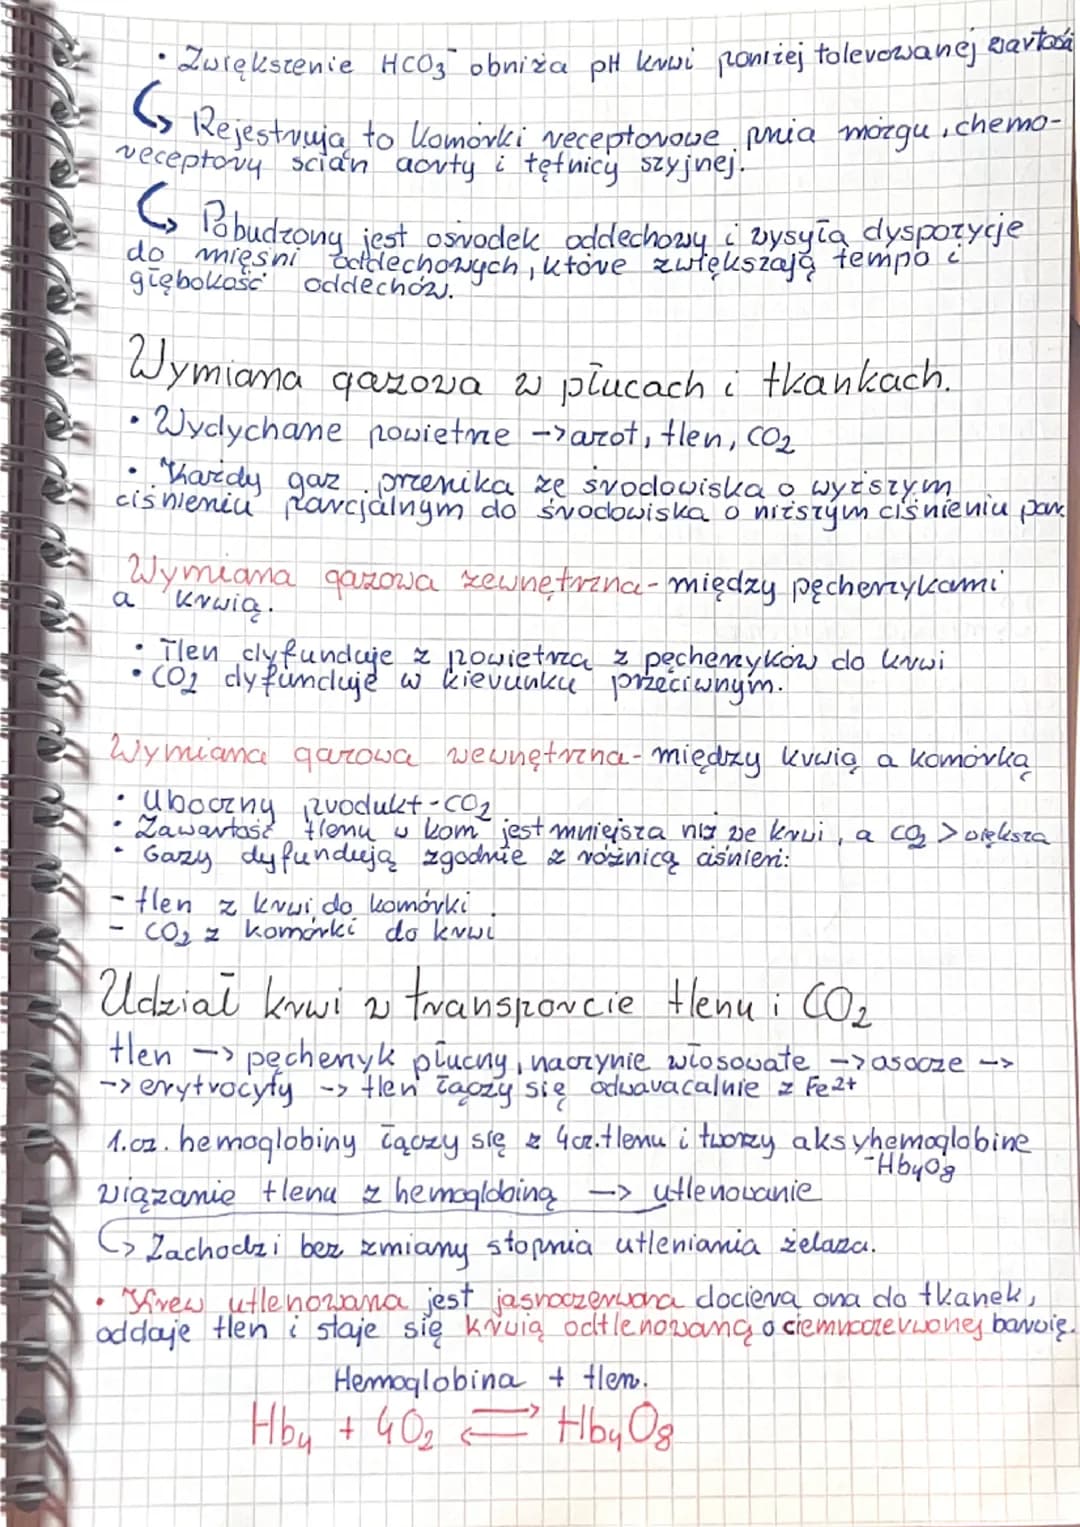 • Zwiększenie HCO₃⁻ obniża pH krwi poniżej tolerowanej wartości
↳ Rejestrują to komórki receptorowe pnia mózgu, chemo-
receptory ścian aorty i tętnicy szyjnej.
↳ Pobudzony jest ośrodek oddechowy i wysyła dyspozycje
do mięśni oddechowych, które zwiększają tempo i
głębokość oddechów.
Wymiana gazowa w płucach i tkankach.
• Wydychane powietrze -> azot, tlen, CO₂
• Każdy gaz przenika ze środowiska o wyższym
ciśnieniu parcjalnym do środowiska o niższym ciśnieniu parc
Wymiana gazowa zewnętrzna - między pęcherzykami
a krwią.
• Tlen dyfunduje z powietrza z pęcherzyków do krwi
• CO₂ dyfunduje w kierunku przeciwnym.
Wymiana gazowa wewnętrzna - między krwią a komórką
• Uboczny produkt - CO₂
• Zawartość tlenu w kom jest mniejsza niż we krwi, a CO₂ > większa
• Gazy dyfundują zgodnie z różnicą ciśnień:
- tlen z krwi do komórki
- CO₂ z komórki do krwi
Udział krwi w transporcie tlenu i CO₂
tlen -> pęcherzyk płucny, naczynie włosowate -> osocze ->
-> erytrocyty -> tlen łączy się odwracalnie z Fe²⁺
1.cz. hemoglobiny łączy się z 4cz. tlenu i tworzy aksyhemoglobine
- Hb₄O₈
wiązanie tlenu z hemoglobiną -> utlenowanie
↳ Zachodzi bez zmiany stopnia utleniania żelaza.
• Krew utlenowana jest jasnoczerwona dociera ona do tkanek,
oddaje tlen i staje się krwią odtlenowaną o ciemnoczerwonej barwie.
Hemoglobina + tlen.
Hb₄ + 4O₂ ⇌ Hb₄O₈